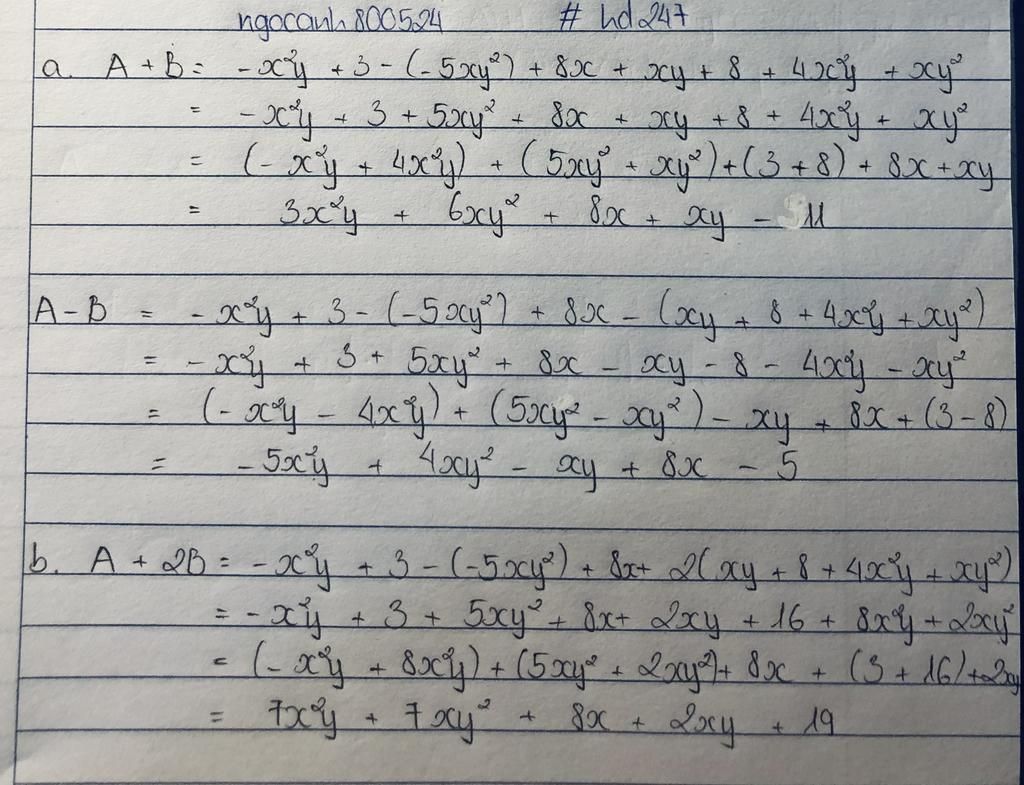 ngocanh800524 # hd247
a. A + B = -x²y + 3 - (-5xy²) + 8x + xy + 8 + 4x²y + xy²
= -x²y + 3 + 5xy² + 8x + xy + 8 + 4x²y + xy²
= (-x²y + 4x²y) + (5xy² + xy²) + (3 + 8) + 8x + xy
= 3x²y + 6xy² + 8x + xy - 11
A - B = -x²y + 3 - (-5xy²) + 8x - (xy + 8 + 4x²y + xy²)
= -x²y + 3 + 5xy² + 8x - xy - 8 - 4x²y - xy²
= (-x²y - 4x²y) + (5xy² - xy²) - xy + 8x + (3 - 8)
= -5x²y + 4xy² - xy + 8x - 5
b. A + 2B = -x²y + 3 - (-5xy²) + 8x + 2(xy + 8 + 4x²y + xy²)
= -x²y + 3 + 5xy² + 8x + 2xy + 16 + 8x²y + 2xy²
= (-x²y + 8x²y) + (5xy² + 2xy²) + 8x + (3 + 16) + 2xy
= 7x²y + 7xy² + 8x + 2xy + 19